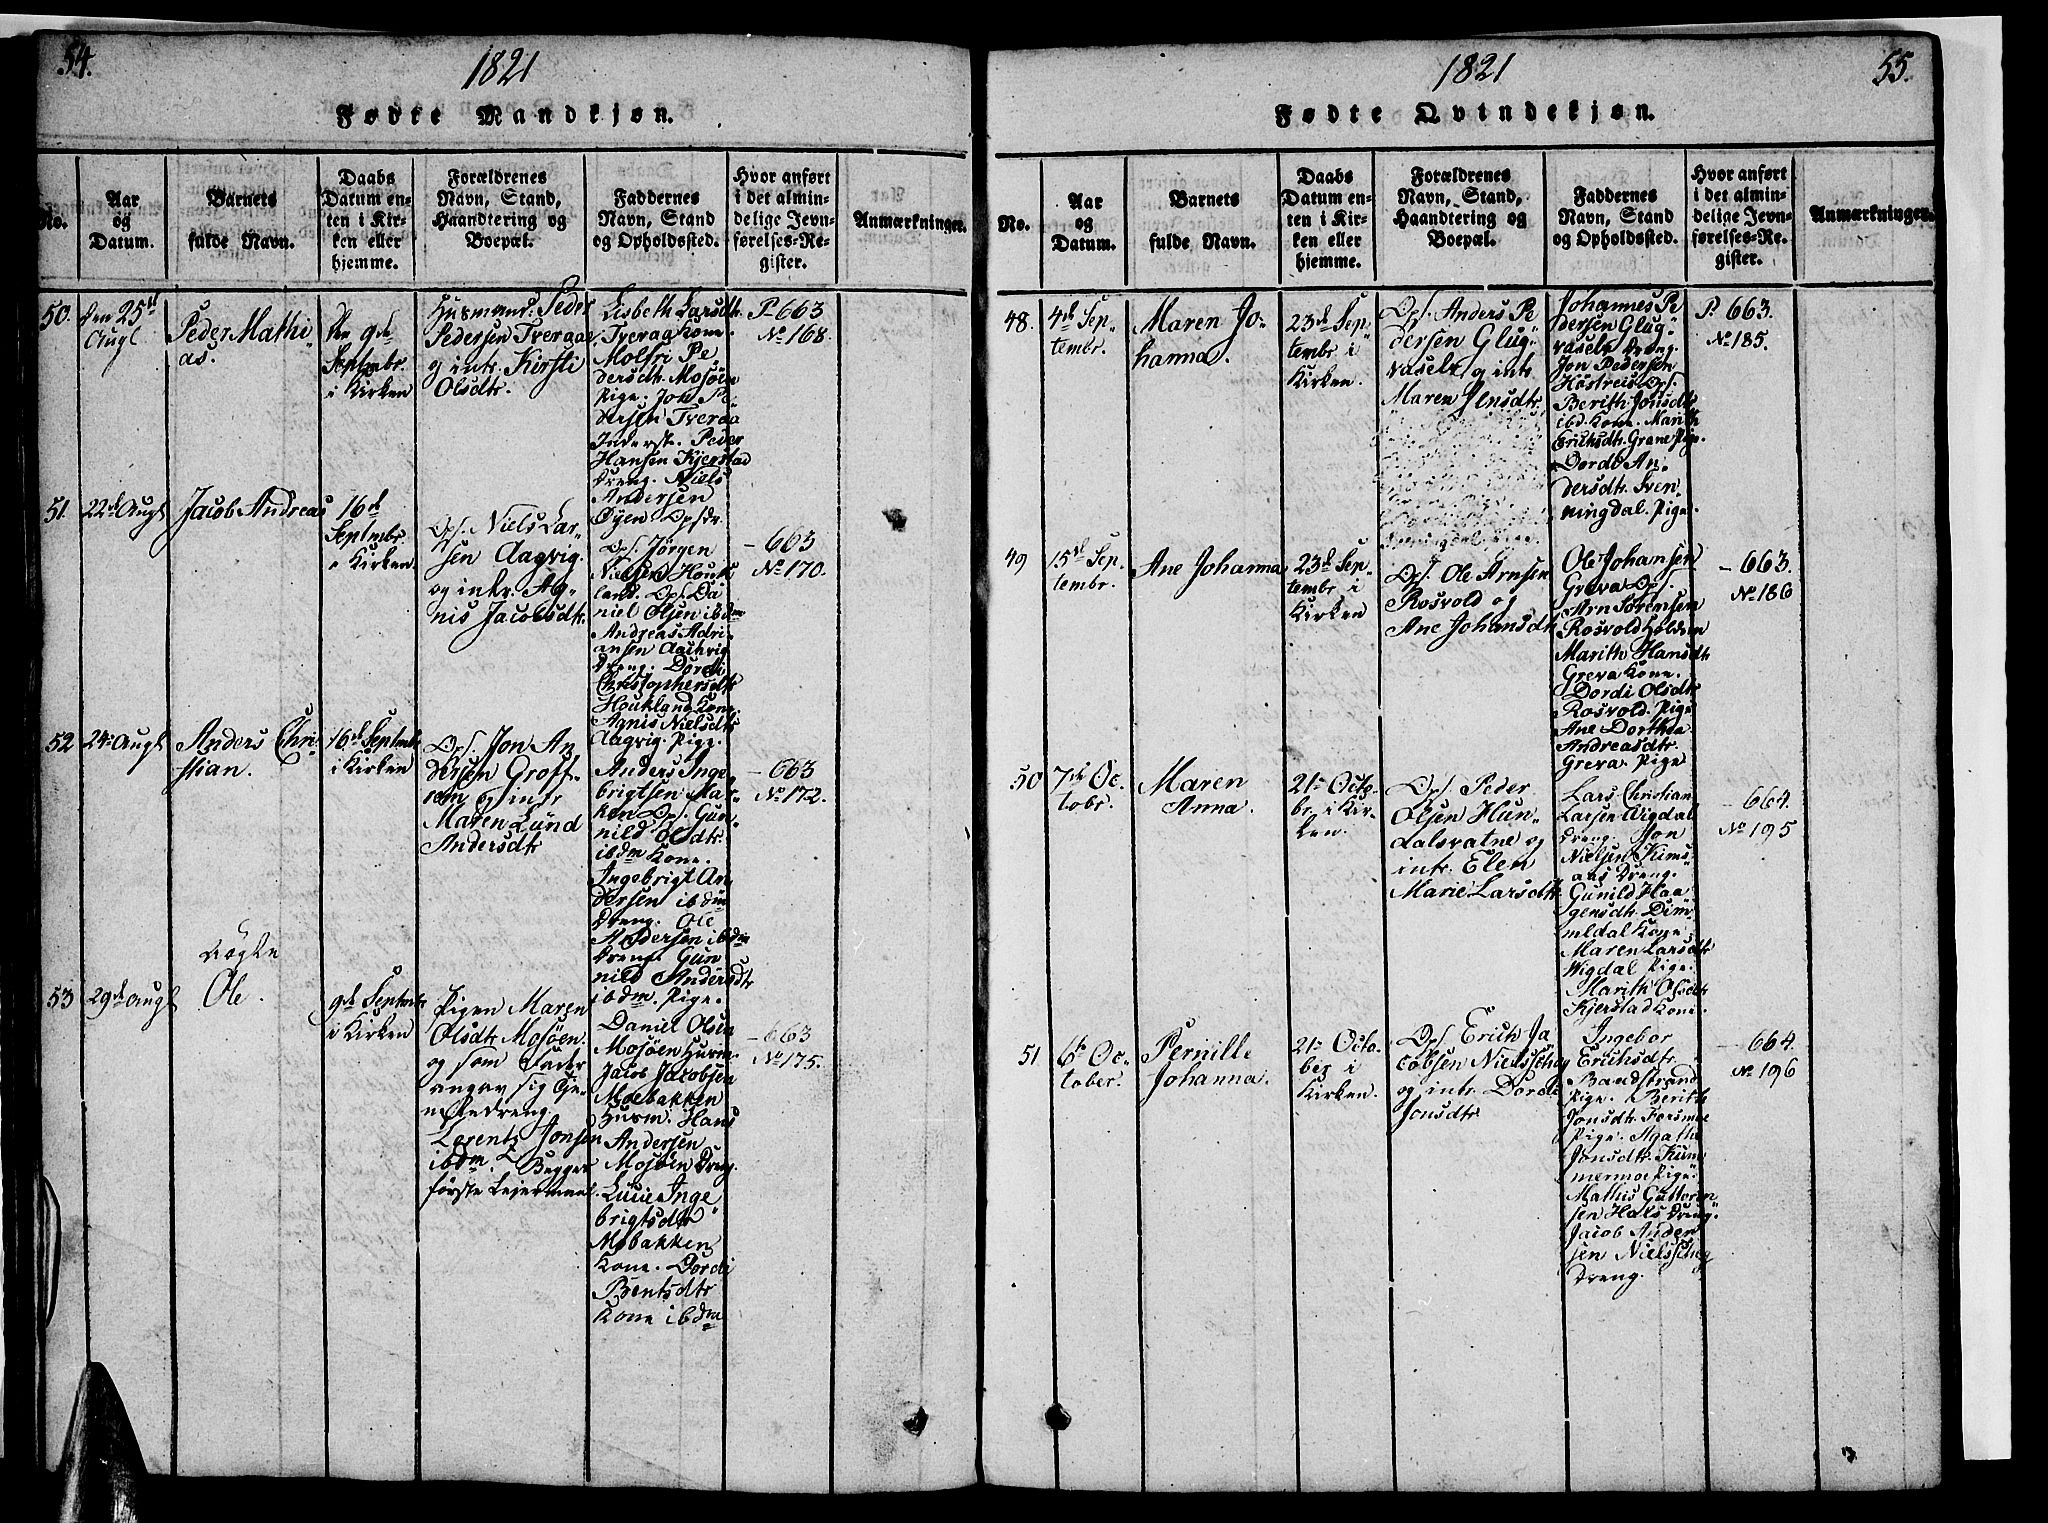 54.
1821
Fødte Mandkjøn.
No.
Aar
og
Datum.
Barnets
fulde Navn.
Daabs
Datum en-
ten i Kir-
ken eller
hjemme.
Forældrenes
Navn, Stand,
Haandtering og
Boepæl.
Faddernes
Navn, Stand
og Opholdssted.
Hvor anført
i det almin-
delige Jevn-
førelses-Re-
gister.
Anmærkninger.
50.
den 25de
Augt
Peder Mathi
as.
den 9de
Septembr.
i Kirken
Huusmand. Peder
Pedersen Tveraae
og intr. Kirsti
Olsdtr.
Lisbeth Larsdtr
Tveraa Kone.
Molfri Pe
dersdtr. Mosöen
Pige. Jon Pe
dersen Tveraa
Inderst. Peder
Hansen Kjerstad
Dreng. Niels
Andersen
Øyen Opsdr.
P. 663
No 168.
51.
22de Augt
Jacob Andreas
16de
Septembr.
i Kirken
Ops. Niels Lar-
sen Aagvig
og intr. Ag-
nis Jacobsdtr.
Ops. Jørgen
Nielsen Houk
land. Ops. Da
niel Olsen ibdm
Andreas Adri-
ansen Aagvig
Dreng. Dordi
Christophersdtr
Houkland Kone.
Agnis Nielsdtr
Aagvig. Pige.
- 663
No 170.
52
24de Augt
Anders Chri-
stian.
16de Septembr
i Kirken
Ops. Jon An
dersen Groft-
rem og intr
Maren Lund
Andersdtr
Anders Inge
brigtsen Mar-
ken Ops. Gun-
nild Olsdtr.
ibdm Kone.
Ingebrigt An
dersen ibdm
Dreng. Ole
Andersen ibdm
Dreng. Gun
nild Andersdtr
ibdm. Pige.
- 663
No 172.
53
29de Augt
Uægte
Ole.
9de Septembr
i Kirken
Pigen Maren
Olsdtr Mosöen.
og som Fader
angav sig Tje-
nestedreng.
Lorents Jonsen
ibdm. Begges
förste Leiermaal.
Daniel Olsen
Mosöen Husm.
Jacob Jacobsen
Moebakken
Husm. Hans
Andersen
Mosöen Dreng.
Lucie Inge
brigtsdtr
Mobakken
Kone. Dordi
Bentsdtr
Kone ibdm
- 663
No 175.
1821
55.
Fødte Qvindekjøn.
No.
Aar
og
Datum.
Barnets
fulde Navn.
Daabs
Datum en-
ten i Kir-
ken eller
hjemme.
Forældrenes
Navn, Stand,
Haandtering og
Boepæl.
Faddernes
Navn, Stand
og Opholdssted.
Hvor anført
i det almin-
delige Jevn-
førelses-Re-
gister.
Anmærkninger.
48.
4de Sep-
tembr.
Maren Jo-
hanna.
23de Sep-
tembr i
Kirken.
Ops. Anders Pe
dersen Glug-
vaselv og intr
Maren Jensdtr.
Johannes Pe
dersen Glug
vaselv Dreng.
Jon Pedersen
Höstreis Ops.
Berith Jonsdtr
ibd. Kone. Marith
Erichsdtr. Grane Pige.
Dordi An
dersdtr. Sven
ningdal. Pige.
P. 663.
No 185.
49
15de Sep-
tembr.
Ane Johanna
23de Sep-
tembr i
Kirken
Ops. Ole Arnsen
Rosvold og
Ane Johansdtr
Ole Johansen
Greva Ops.
Arn Sörensen
Rosvold
Marith Hansdtr
Greva Kone.
Dordi Olsdtr
Rosvold. Pige
Ane Dorthea
Andreasdtr.
Greva. Pige
- 663.
No 186
50
7de Oc-
tobr.
Maren
Anna.
21de Octo-
br. i Kir-
ken.
Ops. Peder
Olsen Hun-
dalsvatne og
intr. Elen
Marie Larsdtr.
Lars Christian
Larsen Wigdal
Dreng. Jon
Nielsen Kims-
aas Dreng.
Gunild Haa
gensdtr. Dim-
meldal Kone
Maren Larsdtr
Wigdal Pige.
Marith Olsdtr
Kjerstad Kone.
- 664.
No 195
51
6te Oc-
tober.
Pernille
Johanna.
21de Octo-
ber i
Kirken.
Ops. Erich Ja
cobsen Nielsscheg
og intr. Dordi
Jonsdtr.
Ingebor
Erichsdtr.
Baadstrand
Pige. Berith
Jonsdtr. Forsmoe
Pige. Agathe
Jonsdtr. Kum
mermoe Pige.
Mathis Guttorm-
sen Hals Dreng.
Jacob Ander
sen Nielsscheg
Dreng.
- 664.
No 196